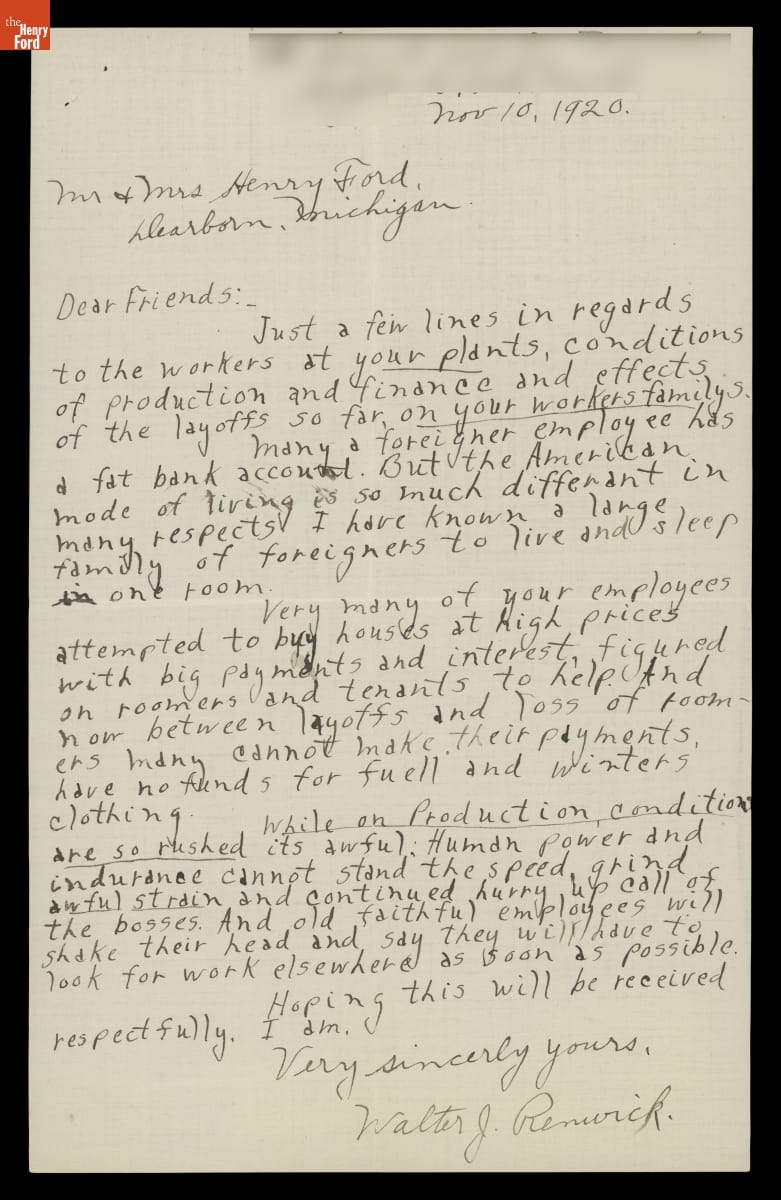 the
Henry
Ford
Nov 10, 1920.
Mr & Mrs Henry Ford,
Dearborn, Michigan.
Dear Friends:-
Just a few lines in regards
to the workers at your plants, conditions
of production and finance and effects
of the layoffs so far, on your workers familys.
Many a foreigner employee has
a fat bank account. But the American
mode of living is so much differant in
many respects. I have known a large
family of foreigners to live and sleep
in one room.
Very many of your employees
attempted to buy houses at high prices
with big payments and interest, figured
on roomers and tenants to help. And
now between layoffs and loss of room-
ers many cannot make their payments,
have no funds for fuell and winters
clothing.
While on Production, condition
are so rushed its awful: Human power and
indurance cannot stand the speed, grind
awful strain and continued hurry up call of
the bosses. And old faithful employees will
shake their head and say they will have to
look for work elsewhere as soon as possible.
Hoping this will be received
respectfully. I am,
Very sincerly yours,
Walter J. Renwick.